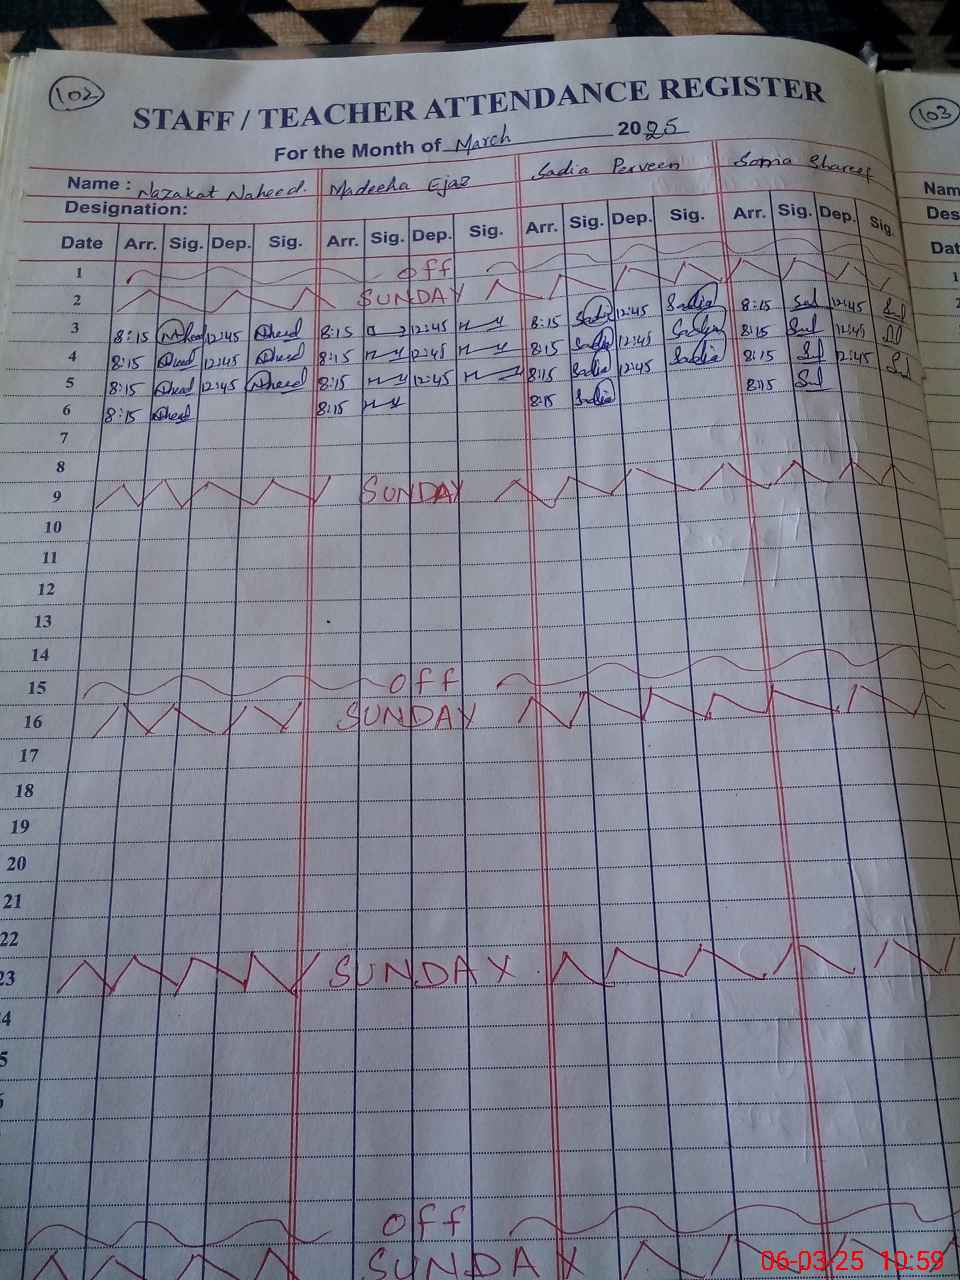 102
STAFF / TEACHER ATTENDANCE REGISTER
103
For the Month of March 2025
Name : Nazakat Naheed. Madeeha Ejaz Sadia Perveen Soma Shareef
Nam
Designation:
Des
Date Arr. Sig. Dep. Sig. Arr. Sig. Dep. Sig. Arr. Sig. Dep. Sig. Arr. Sig. Dep. Sig.
Dat
1 off
1
2 SUNDAY
2
3 8:15 12:45 8:15 12:45 8:15 Sadia 12:45 Sadia 8:15 12:45
3
4 8:15 12:45 8:15 12:45 8:15 Sadia 12:45 Sadia 8:15 12:45
5 8:15 12:45 8:15 12:45 8:15 Sadia 12:45 Sadia 8:15 12:45
6 8:15 8:15 8:15 Sadia 8:15
7
8
9 SUNDAY
10
11
12
13
14
15 off
16 SUNDAY
17
18
19
20
21
22
23 SUNDAY
4
5
off
SUNDAY
06-03-25 10:59